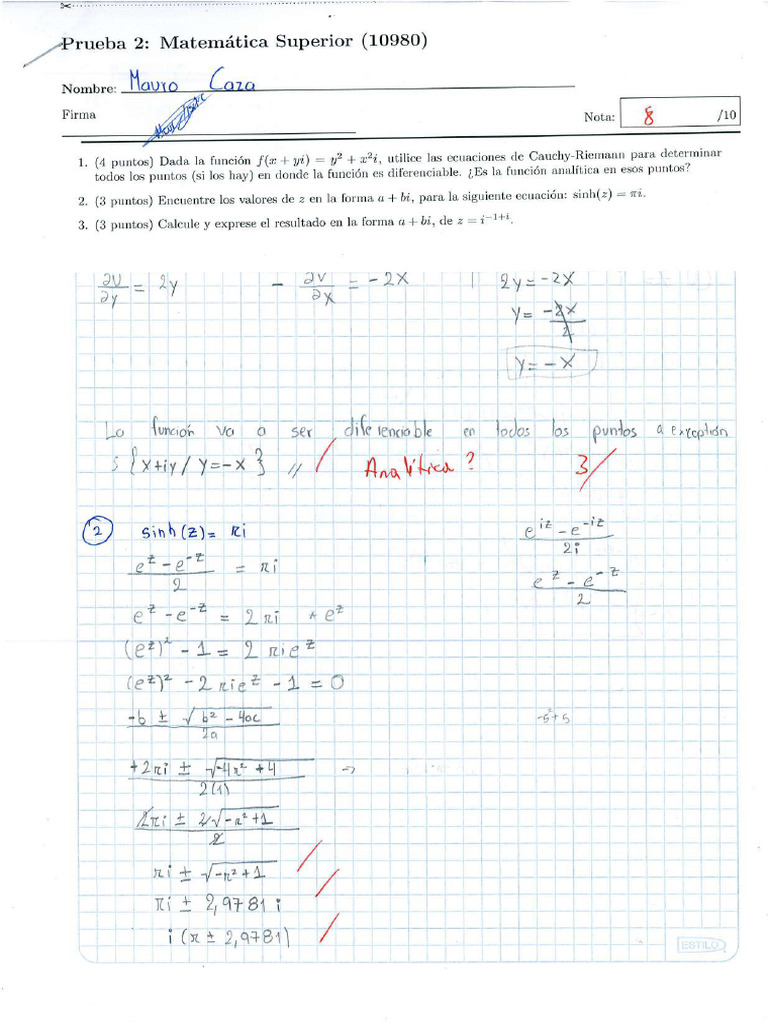 Prueba 2: Matemática Superior (10980)
Nombre: Mauro Caza
Firma
Nota: 8 /10
1. (4 puntos) Dada la función f(x + yi) = y² + x²i, utilice las ecuaciones de Cauchy-Riemann para determinar
todos los puntos (si los hay) en donde la función es diferenciable. ¿Es la función analítica en esos puntos?
2. (3 puntos) Encuentre los valores de z en la forma a + bi, para la siguiente ecuación: sinh(z) = πi.
3. (3 puntos) Calcule y exprese el resultado en la forma a + bi, de z = i⁻¹⁺ⁱ.
∂U/∂y = 2y - ∂V/∂x = -2x | 2y = -2x
y = -2x/2
y = -x
La función va a ser diferenciable en todos los puntos a excepción
s {x+iy / y=-x} // Analítica? 3/
2 sinh(z) = πi
(e^z - e^-z)/2 = πi
e^z - e^-z = 2πi * e^z
(e^z)² - 1 = 2πie^z
(e^z)² - 2πie^z - 1 = 0
(-b ± √(b² - 4ac))/2a
(+2πi ± √(-4π² + 4))/2(1) →
(2πi ± 2√(-π² + 1))/2
πi ± √(-π² + 1)
πi ± 2,9781 i
i (π ± 2,9781)
(e^iz - e^-iz)/2i
(e^z - e^-z)/2
ESTILO